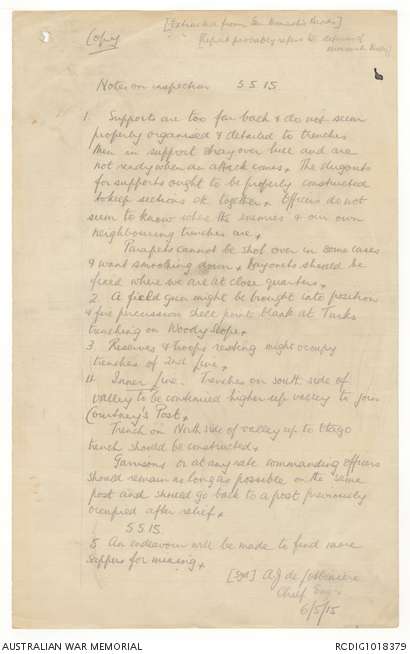 Copy
[Extracted from Gen Monash's Papers]
Report probably refers to defence of
Monash Valley]
Notes on inspection 5.5.15.
1 Supports are too far back & do not seem
properly organised & detailed to trenches
Men in support stray over hill and are
not ready when an attack comes. The dugouts
for supports ought to be properly constructed
to keep sections etc together. Officers do not
seem to know where the enemies & our own
neighbouring trenches are.
Parapets cannot be shot over in some cases
& want smoothing down. Bayonets should be
fixed where we are at close quarters.
2. A field gun might be brought into position
& fire percussion shell point blank at Turks
trenching on Woody Slope.
3 Reserves & troops resting might occupy
trenches of 2nd line.
4. Inner line. Trenches on south side of
valley to be continued higher up valley to join
Courtney's Post.
Trench on North side of valley up to Otago
trench should be constructed.
Garrisons or at any rate commanding officers
should remain as long as possible on the same
post and should go back to a post previously
occupied after relief.
5.5.15.
5 An endeavour will be made to find more
sappers for mining.
[Sgd] A J de Lotbiniere
Chief Eng
6/5/15
AUSTRALIAN WAR MEMORIAL
RCDIG1018379